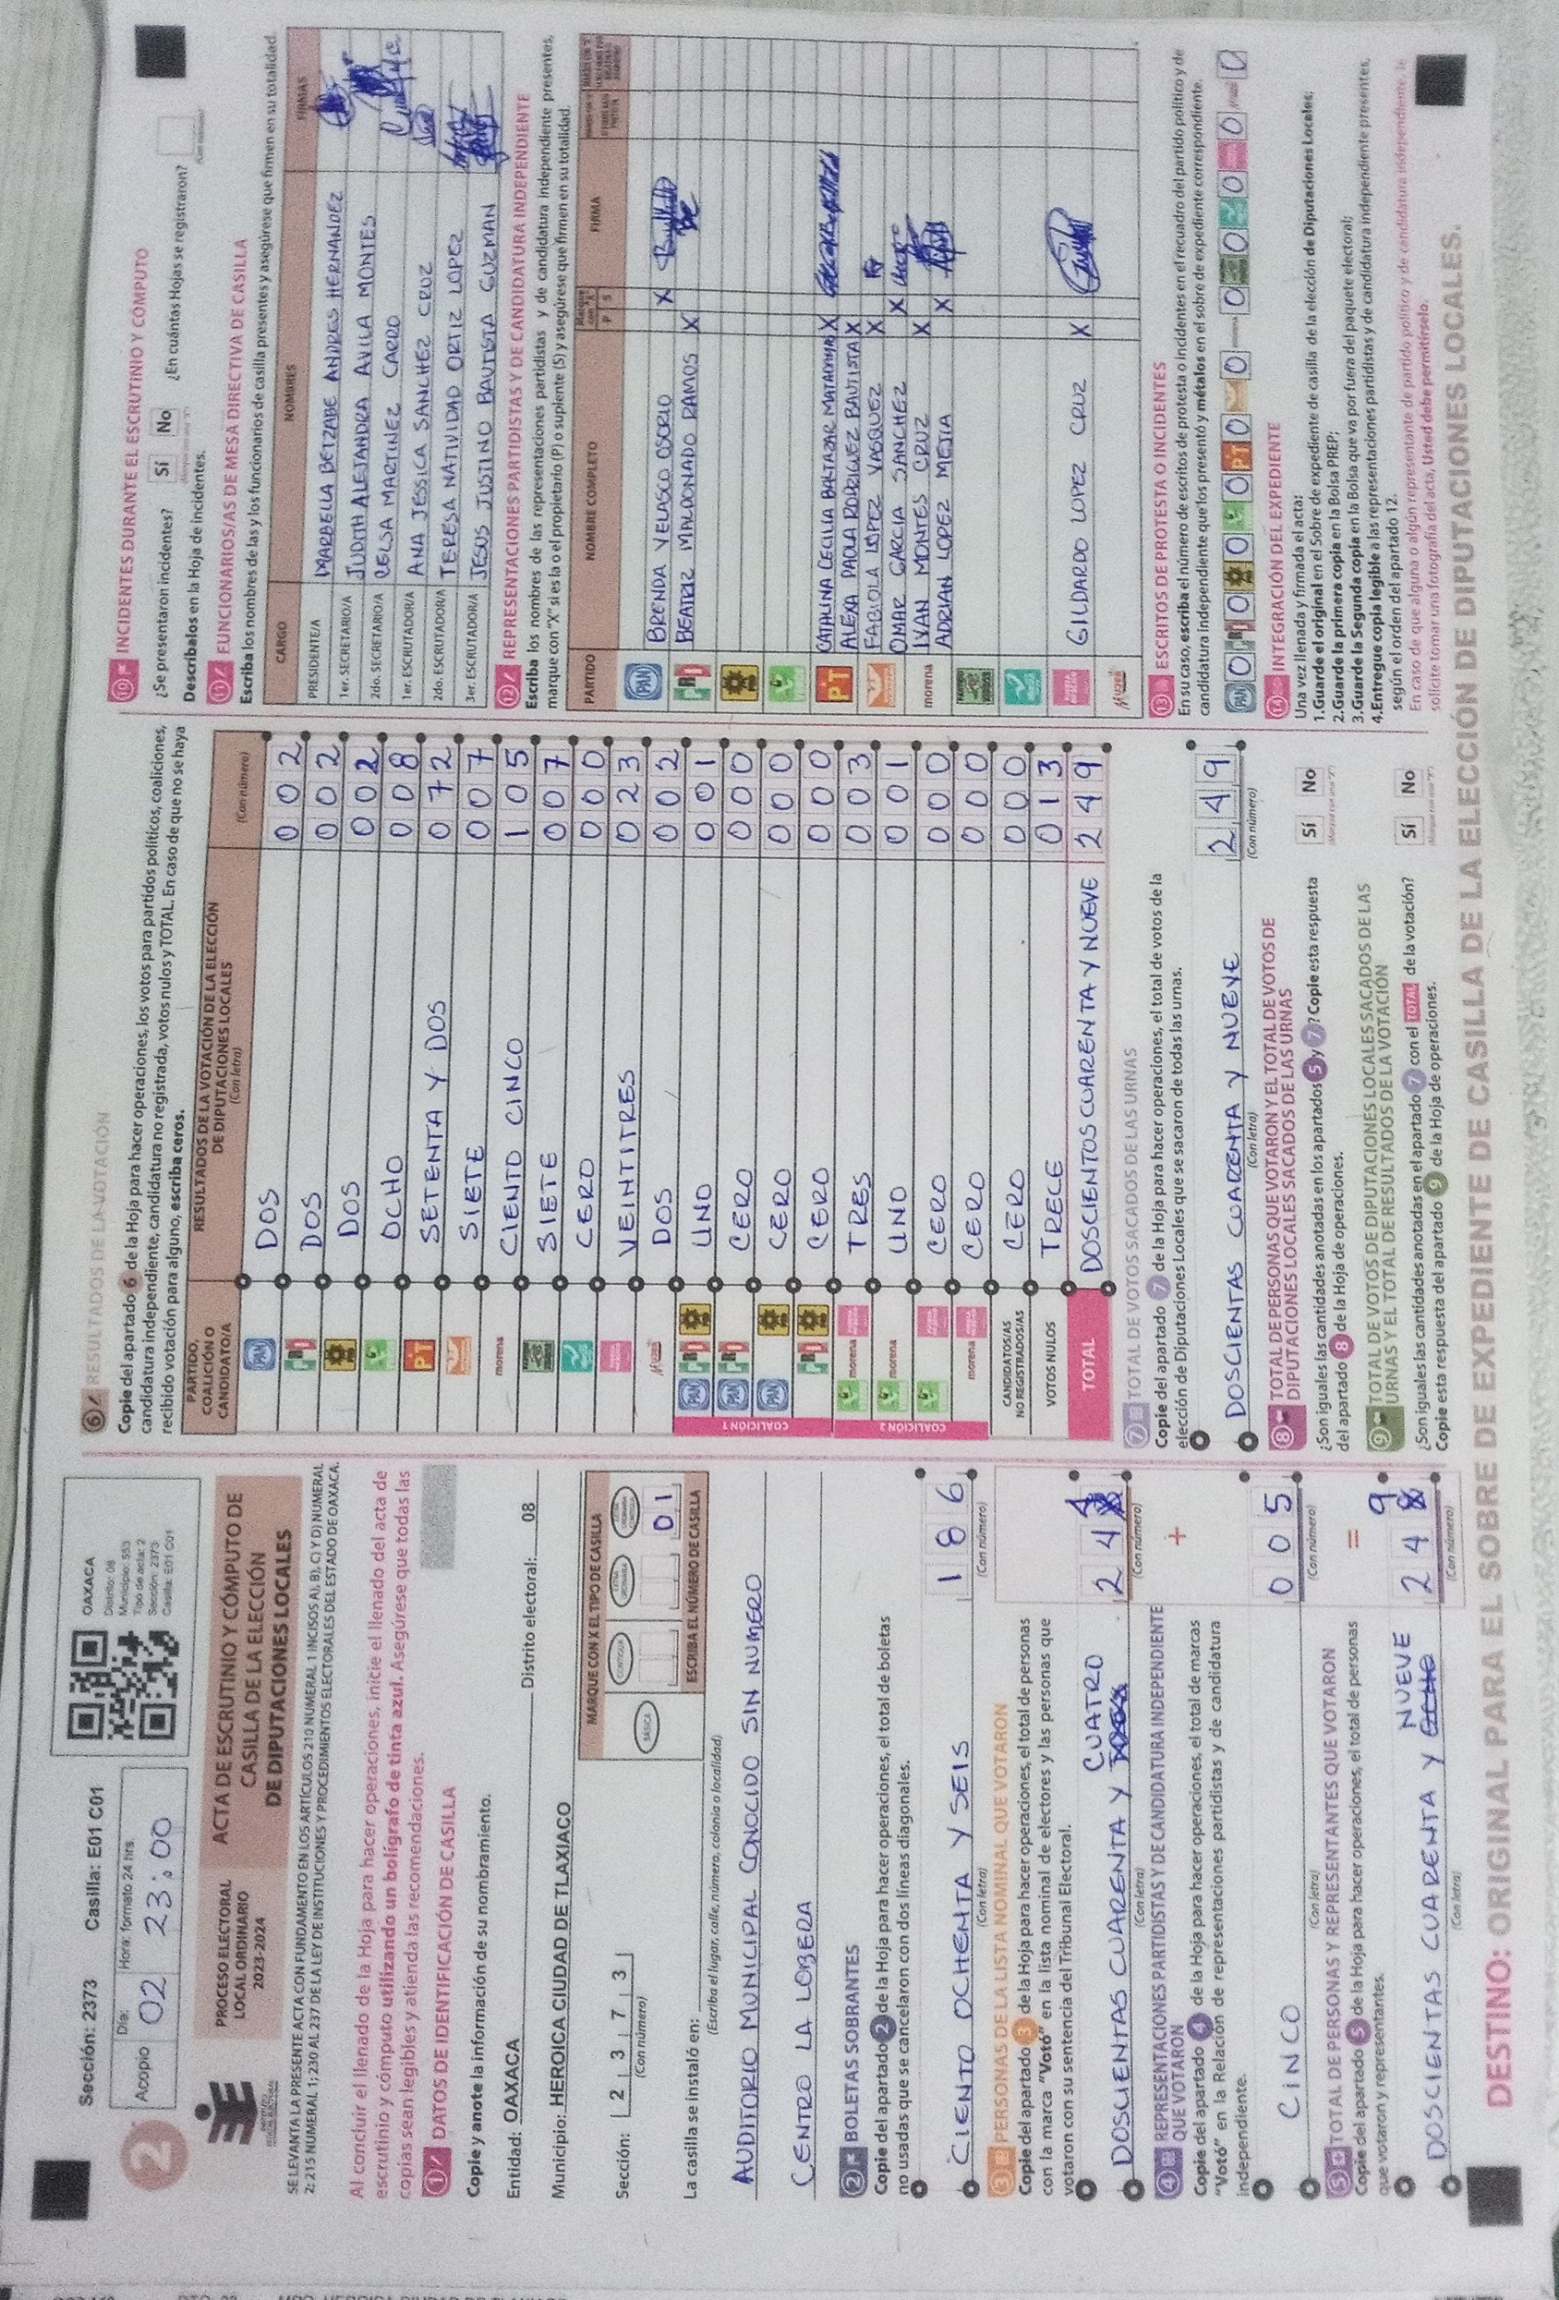 Sección: 2373 Casilla: E01 C01
2
Acopio Día: 02 Hora: formato 24 hrs. 23:00
OAXACA
Distrito: 08
Municipio: 553
Tipo de acta: 2
Sección: 2373
Casilla: E01 C01
PROCESO ELECTORAL
LOCAL ORDINARIO
2023-2024
ACTA DE ESCRUTINIO Y CÓMPUTO DE
CASILLA DE LA ELECCIÓN
DE DIPUTACIONES LOCALES
SE LEVANTA LA PRESENTE ACTA CON FUNDAMENTO EN LOS ARTÍCULOS 210 NUMERAL 1 INCISOS A), B), C) Y D) NUMERAL
2; 215 NUMERAL 1; 230 AL 237 DE LA LEY DE INSTITUCIONES Y PROCEDIMIENTOS ELECTORALES DEL ESTADO DE OAXACA.
Al concluir el llenado de la Hoja para hacer operaciones, inicie el llenado del acta de
escrutinio y cómputo utilizando un bolígrafo de tinta azul. Asegúrese que todas las
copias sean legibles y atienda las recomendaciones.
1 DATOS DE IDENTIFICACIÓN DE CASILLA
Copie y anote la información de su nombramiento.
Entidad: OAXACA Distrito electoral: 08
Municipio: HEROICA CIUDAD DE TLAXIACO
Sección: 2 3 7 3
(Con número)
MARQUE CON X EL TIPO DE CASILLA
BÁSICA CONTIGUA
0 1
ESCRIBA EL NÚMERO DE CASILLA
La casilla se instaló en:
(Escriba el lugar, calle, número, colonia o localidad)
AUDITORIO MUNICIPAL CONOCIDO SIN NUMERO
CENTRO LA LOBERA
2 BOLETAS SOBRANTES
Copie del apartado 2 de la Hoja para hacer operaciones, el total de boletas
no usadas que se cancelaron con dos líneas diagonales.
CIENTO OCHENTA Y SEIS 1 8 6
(Con letra) (Con número)
3 PERSONAS DE LA LISTA NOMINAL QUE VOTARON
Copie del apartado 3 de la Hoja para hacer operaciones, el total de personas
con la marca "Votó" en la lista nominal de electores y las personas que
votaron con su sentencia del Tribunal Electoral.
DOSCIENTAS CUARENTA Y CUATRO 2 4 4
(Con letra) (Con número)
4 REPRESENTACIONES PARTIDISTAS Y DE CANDIDATURA INDEPENDIENTE
QUE VOTARON
+
Copie del apartado 4 de la Hoja para hacer operaciones, el total de marcas
"Votó" en la Relación de representaciones partidistas y de candidatura
independiente.
CINCO 0 0 5
(Con letra) (Con número)
5 TOTAL DE PERSONAS Y REPRESENTANTES QUE VOTARON
=
Copie del apartado 5 de la Hoja para hacer operaciones, el total de personas
que votaron y representantes.
DOSCIENTAS CUARENTA Y NUEVE 2 4 9
(Con letra) (Con número)
6 RESULTADOS DE LA VOTACIÓN
Copie del apartado 6 de la Hoja para hacer operaciones, los votos para partidos políticos, coaliciones,
candidatura independiente, candidatura no registrada, votos nulos y TOTAL. En caso de que no se haya
recibido votación para alguno, escriba ceros.
PARTIDO, COALICIÓN O CANDIDATO/A
RESULTADOS DE LA VOTACIÓN DE LA ELECCIÓN
DE DIPUTACIONES LOCALES
(Con letra) (Con número)
PAN DOS 002
PRI DOS 002
PRD DOS 002
OCHO 008
PT SETENTA Y DOS 072
SIETE 007
morena CIENTO CINCO 105
SIETE 007
CERO 000
VEINTITRES 023
DOS 002
COALICIÓN 1
PAN PRI PRD UNO 001
PAN PRI CERO 000
PAN PRD CERO 000
PRI PRD CERO 000
COALICIÓN 2
morena TRES 003
morena UNO 001
CERO 000
morena CERO 000
CANDIDATOS/AS NO REGISTRADOS/AS CERO 000
VOTOS NULOS TRECE 013
TOTAL DOSCIENTOS CUARENTA Y NUEVE 249
7 TOTAL DE VOTOS SACADOS DE LAS URNAS
Copie del apartado 7 de la Hoja para hacer operaciones, el total de votos de la
elección de Diputaciones Locales que se sacaron de todas las urnas.
DOSCIENTAS CUARENTA Y NUEVE 2 4 9
(Con letra) (Con número)
8 TOTAL DE PERSONAS QUE VOTARON Y EL TOTAL DE VOTOS DE
DIPUTACIONES LOCALES SACADOS DE LAS URNAS
¿Son iguales las cantidades anotadas en los apartados 5 y 7? Copie esta respuesta
del apartado 8 de la Hoja de operaciones.
Sí No
9 TOTAL DE VOTOS DE DIPUTACIONES LOCALES SACADOS DE LAS
URNAS Y EL TOTAL DE RESULTADOS DE LA VOTACIÓN
¿Son iguales las cantidades anotadas en el apartado 7 con el TOTAL de la votación?
Copie esta respuesta del apartado 9 de la Hoja de operaciones.
Sí No
10 INCIDENTES DURANTE EL ESCRUTINIO Y CÓMPUTO
¿Se presentaron incidentes? Sí No ¿En cuántas Hojas se registraron?
Descríbalos en la Hoja de incidentes.
11 FUNCIONARIOS/AS DE MESA DIRECTIVA DE CASILLA
Escriba los nombres de las y los funcionarios de casilla presentes y asegúrese que firmen en su totalidad.
CARGO NOMBRES FIRMAS
PRESIDENTE/A MARBELLA BETZABE ANDRES HERNANDEZ
1er. SECRETARIO/A JUDITH ALEJANDRA AVILA MONTES
2do. SECRETARIO/A CELSA MARTINEZ CARRO
1er. ESCRUTADOR/A ANA JESSICA SANCHEZ CRUZ
2do. ESCRUTADOR/A TERESA NATIVIDAD ORTIZ LOPEZ
3er. ESCRUTADOR/A JESUS JUSTINO BAUTISTA GUZMAN
12 REPRESENTACIONES PARTIDISTAS Y DE CANDIDATURA INDEPENDIENTE
Escriba los nombres de las representaciones partidistas y de candidatura independiente presentes,
marque con "X" si es la o el propietario (P) o suplente (S) y asegúrese que firmen en su totalidad.
PARTIDO NOMBRE COMPLETO Marque con "X" P S FIRMA
PAN BRENDA VELASCO OSORIO X
PRI BEATRIZ MALDONADO RAMOS X
PT CATALINA CECILIA BALTAZAR X
ALEXA PAOLA RODRIGUEZ BAUTISTA X
FABIOLA LOPEZ VASQUEZ X
OMAR GARCIA SANCHEZ X
morena IVAN MONTES CRUZ X
ADRIAN LOPEZ MEJIA X
GILDARDO LOPEZ CRUZ X
13 ESCRITOS DE PROTESTA O INCIDENTES
En su caso, escriba el número de escritos de protesta o incidentes en el recuadro del partido político y de
candidatura independiente que los presentó y métalos en el sobre de expediente correspondiente.
PAN 0 PRI 0 0 0 PT 0 0 0 0 0 0 0
14 INTEGRACIÓN DEL EXPEDIENTE
Una vez llenada y firmada el acta:
1.Guarde el original en el Sobre de expediente de casilla de la elección de Diputaciones Locales;
2.Guarde la primera copia en la Bolsa PREP;
3.Guarde la Segunda copia en la Bolsa que va por fuera del paquete electoral;
4.Entregue copia legible a las representaciones partidistas y de candidatura independiente presentes,
según el orden del apartado 12.
En caso de que alguna o algún representante de partido político y de candidatura independiente, le
solicite tomar una fotografía del acta, Usted debe permitírselo.
DESTINO: ORIGINAL PARA EL SOBRE DE EXPEDIENTE DE CASILLA DE LA ELECCIÓN DE DIPUTACIONES LOCALES.